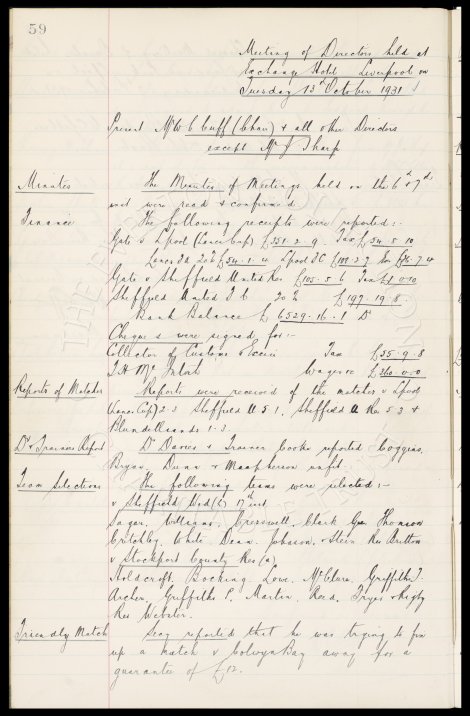 59
Meeting of Directors held at
Exchange Hotel Liverpool on
Tuesday 13th October 1931
Present Mr W C Cuff (Chair) & all other Directors
except Mr J Sharp
Minutes The Minutes of Meetings held on the 6th & 7th
inst were read & confirmed.
Finance The following receipts were reported:-
Gate v L'pool (Lancs Cup) £551. 2. 9. Tax £54. 5. 10
Lancs FA 20% £54. 1. 4. L'pool FC £101. 2. 7
Gate v Sheffield United Res £105. 5. 6 Tax
Sheffield United FC 20% £197. 19. 8
Bank Balance £6529. 16. 1 Dr
Cheques were signed for:-
Collector of Customs & Excise Tax £55. 9. 8
Wages £260. 0. 0
Reports of Matches Reports were received of the matches v L'pool
(Lancs Cup) 2-3 Sheffield U 5-1, Sheffield U Res 5-3 &
Blundellsands 1-3.
Dr & Trainers Report Dr Davies & Trainer Cooke reported Coggins,
Bryan, Dunn & Macpherson unfit.
Team Selections The following teams were selected:-
v Sheffield Wed (h) 17th inst
Sagar, Williams, Cresswell, Clark, Gee, Thomson
Critchley, White, Dean, Johnson, & Stein Res Britton
v Stockport County Res (a)
Holdcroft, Bocking, Lowe, McClure, Griffiths T.
Archer, Griffiths P. Martin, Reed, Fryer & Rigby
Res Webster.
Friendly Match Secy reported that he was trying to fix
up a match v Colwyn Bay away for a
guarantee of £12.